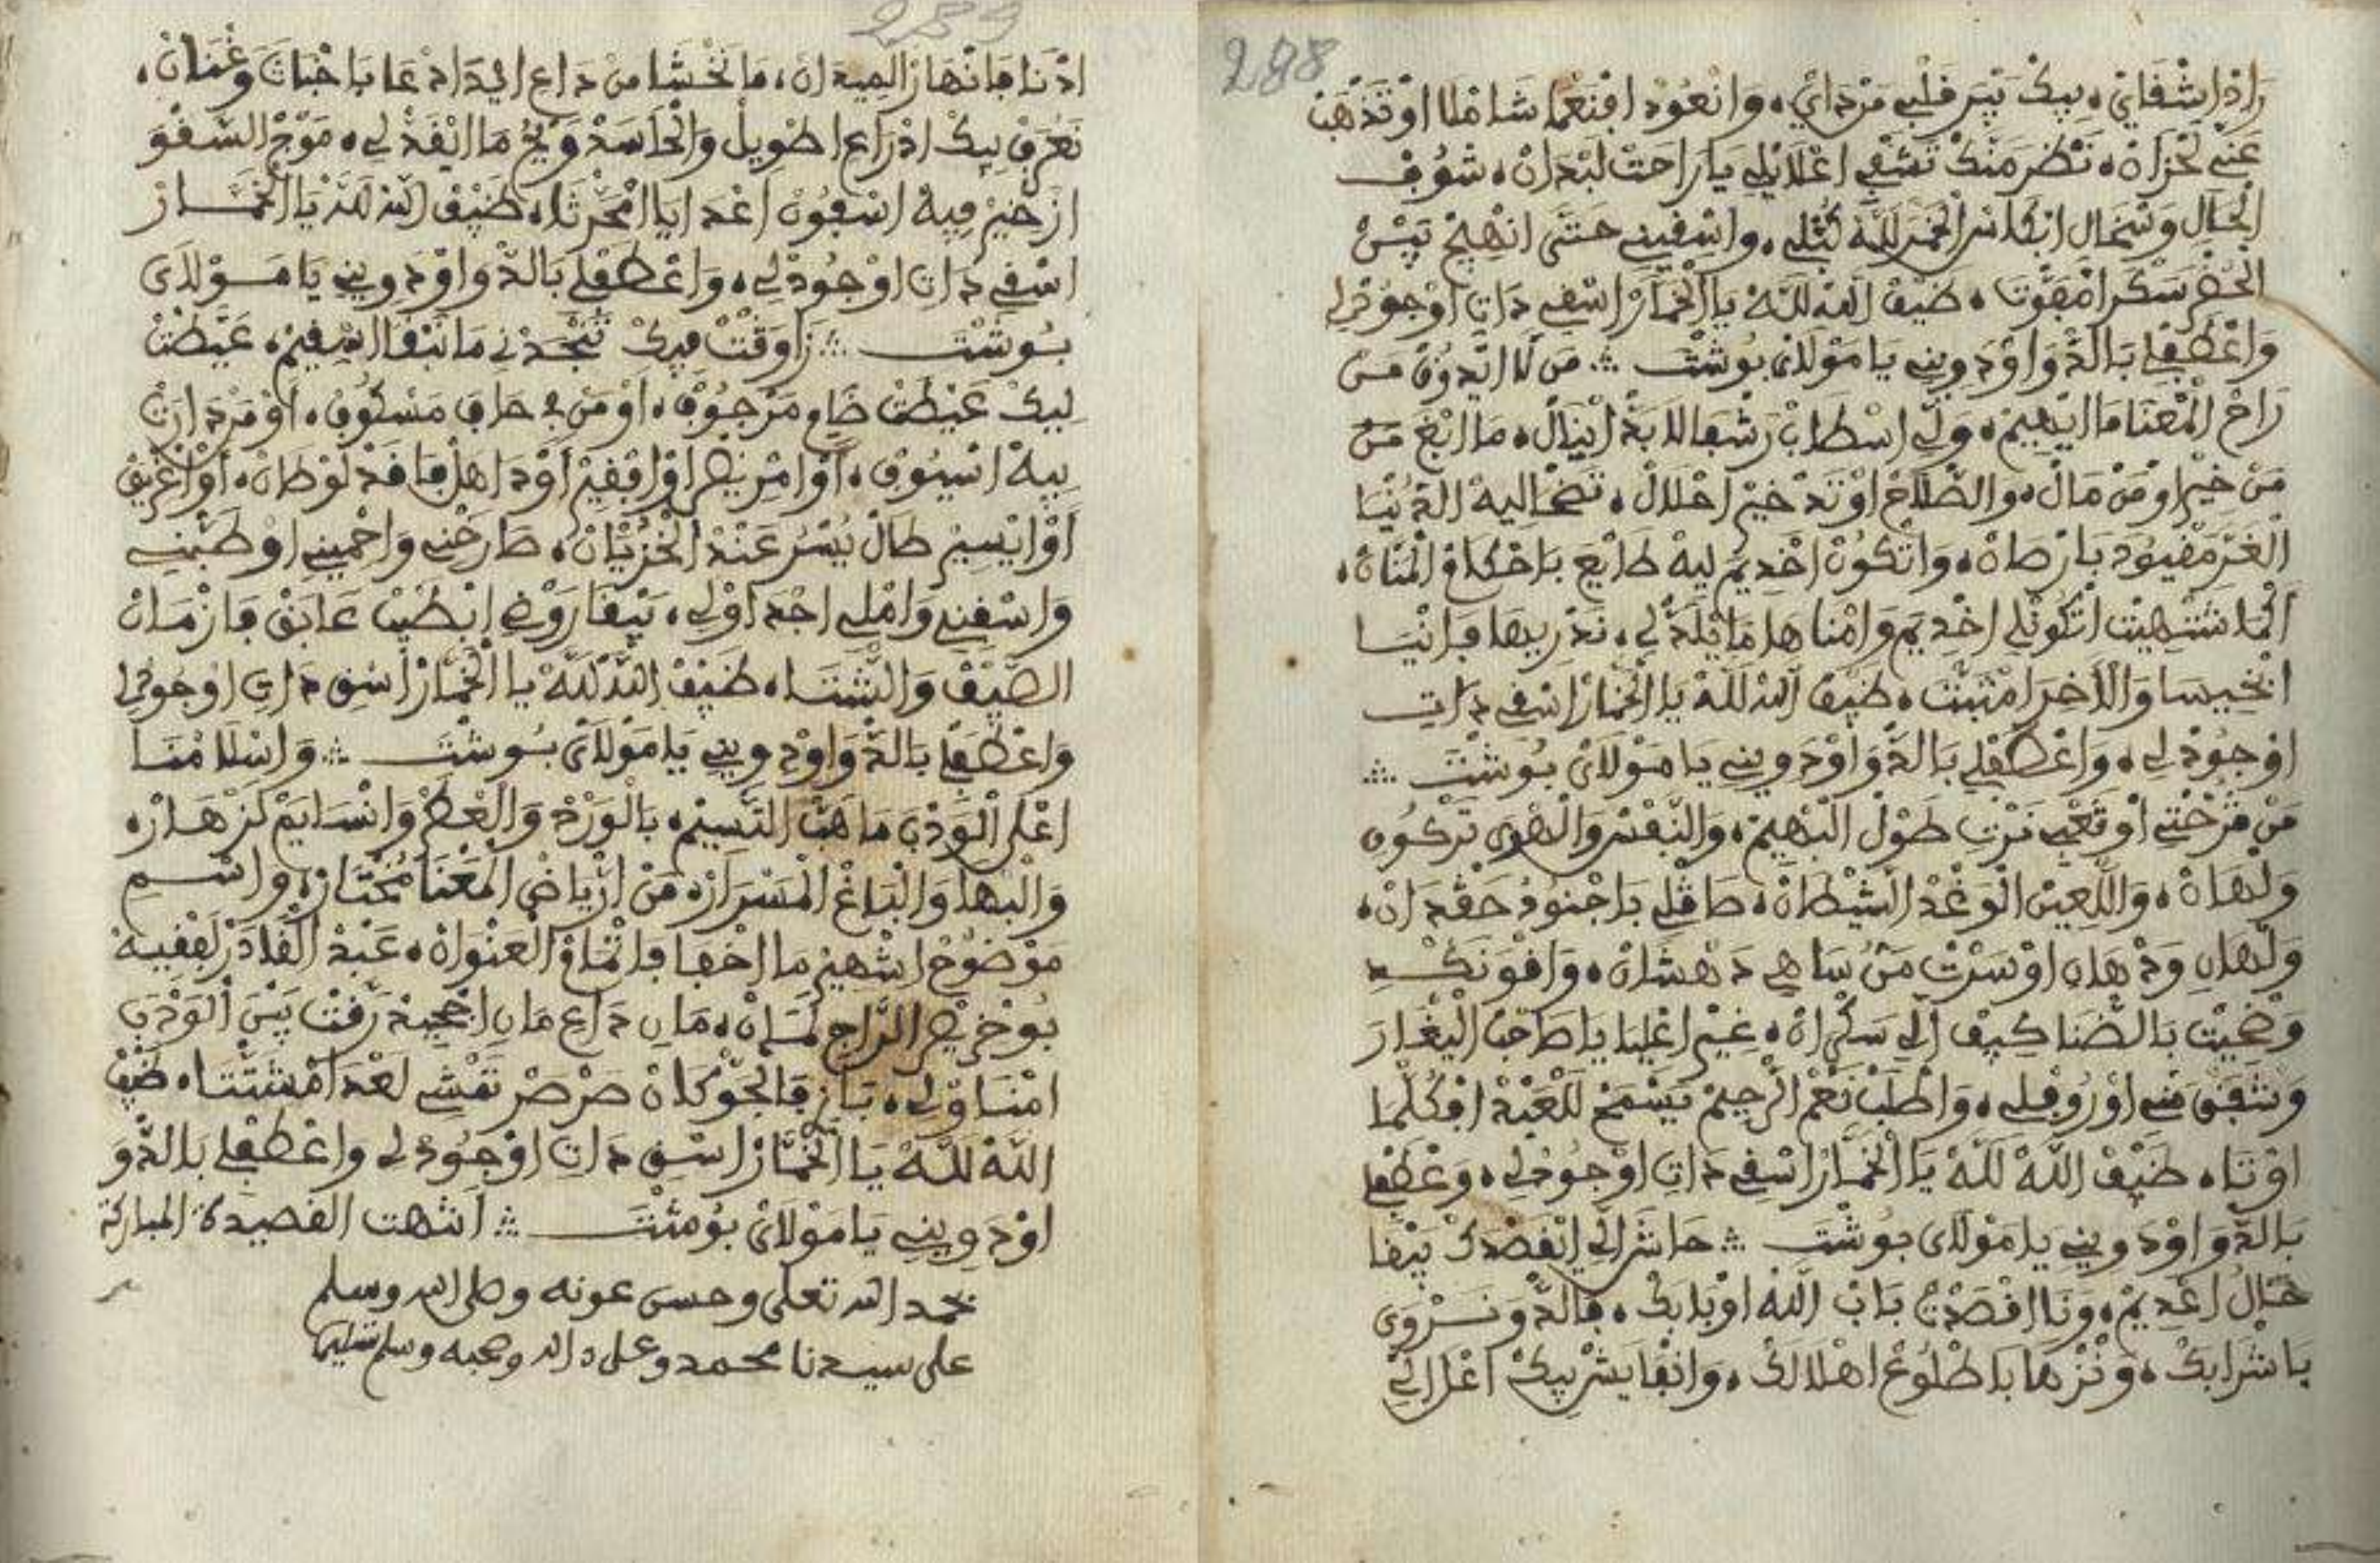 288
رَاذْ اشْفَايْ، بِيكْ تَبْرَ قَلْبِي مَنْ دَايْ، وَانْعُودْ افْنَعْمَا شَامْلَا اوْتَذْهَبْ
عَنِّي لَحْزَانْ، نَظْرَ مَنَّكْ تَشْفِي اعْلَايْلِي يَا رَاحَتْ لَبْدَانْ، شُوفْ
الْحَالْ وَنْحَالِ ابْكَاسْ الْخَمْرْ لِلَّهْ كُبْلِي، وَاسْقِينِي حَتَّى انْهِيجْ بَيْنْ
الْحَضْرَ سَكْرَ امْفَوْتَا، ضَيْفْ اللهْ لِلَّهْ يَا الْخَمَّارْ اسْقِي دَاتِ اوْجُودْلِي
وَاعْطَفْلِي بَالدّْوَا اوْدَوِينِي يَا مَوْلَايْ بُوشْتَ ∴ مَنْ لَا ايْدُوقْ مَنْ
رَاحْ الْمَعْنَا مَا ايْهِيمْ، وَلِّي اسْطَابْ رَشْفَا لَابَدّْ ايْنَالْ، مَا ابْغَ مَنْ
مَنْ خِيرْ اوْمَنْ مَالْ، وَالصّْلَاحْ اوْتَدْ خِيرْ احْلَالْ، تَضْحَا لِيهْ الدُّنْيَا
الْغَرَّ مَقْيُودَ بَارْصَانْ، وَاتْكُونْ اخْدِيمْ لِيهْ طَايْعَ بَاحْكَامْ الْمَنَّانْ،
الْمَا شْتْهِيتْ اتْكُونْلِي اخْدِيمْ وَامْنَاهَا مَا يْلَدّْ لِي، نَدْرِيهَا فَانْيَا
اخْسِيسَا وَالْاخْرَ امْثَبْتَ، ضَيْفْ اللهْ لِلَّهْ يَا الْخَمَّارْ اسْقِي دَاتِ
اوْجُودْ لِي، وَاعْطَفْلِي بَالدّْوَا اوْدَوِينِي يَا مَوْلَايْ بُوشْتَ ∴
مَنْ قَرْحْتِي اوْتَعْبِي نَرْتِ طُولْ الْبْهِيمْ، وَالنَّفْسْ وَالْهْوَى تَرْكُونِ
وَلْهَانْ، وَاللّْعِينْ الْوَغْدْ الشَّيْطَانْ، صَاقْلِي بَاجْنُودْ حَقْدَانْ،
وَلْهَانِ وَدْهَانِ اوْسَرْتْ مَنُّ سَاهِي دَهْشَانْ، وَاقْوَ نَكْدِ
وَضْحَيْتْ بَالضّْنَا كِيفْ الِّي سَكْرَانْ، غِيرْ اعْلِيَا يَا صَاحَبْ الْيْغَارَ
وَشْفَقْ مَنِّي اوْرُوفْلِي، وَاطْلَبْ نَعْمْ الرَّحِيمْ يَسْمَحْ لَلْعَبْدْ افْكُلّْمَا
اوْتَا، ضَيْفْ اللهْ لِلَّهْ يَا الْخَمَّارْ اسْقِي دَاتِ اوْجُودْلِي، وَعْطَفْلِي
بَالدّْوَا اوْدَوِينِي يَا مَوْلَايْ بُوشْتَ ∴ حَاشَ الِّي ايْقَصْدَكْ يَبْقَا
حَالُ اعْدِيمْ، وَنَا اقْصَدْتْ بَابْ اللهْ اوْبَابَكْ، فَالدّْوَ نَرْوَى
بَاشْرَابَكْ، وَنْزْهَا بَاطْلُوعْ اهْلَالَكْ، وَانْفَايَشْ بِيكْ اعْلَى الِّي
اذْنَا فَانْهَارْ الْمِيدَانْ، مَا نَخْشَا مَنْ دَاعِ الِي دَامْ عَا بَاخْبَاتَ وَغْنَانْ،
نَعْرَفْ بِيكْ ادْرَاعِ اطْوِيلْ وَالْحَاسَدْ وَيْحُ مَا ايْفَدْ لِي، مَوْجْ السَّفْوَ
ازْخِيرْ فِيهْ اسْفُونْ اعْدَايَا امْحَرْثَا، ضَيْفْ اللهْ لِلَّهْ يَا الْخَمَّارْ
اسْقِي دَاتِ اوْجُودْ لِي، وَاعْطَفْلِي بَالدّْوَا اوْدَوِينِي يَا مَوْلَايْ
بُوشْتَ ∴ زَاوَقْتْ فِيكْ تَنْجَدْنِي مَا نَبْقَا اسْقِيمْ، عَيَّطْتْ
لِيكْ عَيْطَتْ ضَايْمْ مَرْجُوفْ، اوْمَنْ فِي حَافِ مَسْكُوفْ، اوْمَنْ دَارَتْ
بِيهْ اسْيُوفْ، اوْامْرِيضْ اوْافْقِيرْ اوْدَاهَلْ فَاقَدْ لَوْطَانْ، اوْاغْرِيقْ
اوْايْسِيرْ طَالْ يُسْرُ عَنْدْ الْخَزْيَانْ، صَارَخْنِي وَاحْمِينِي اوْضَمّْنِي
وَاسْقِنِي وَامْلِي اجْدَاوْلِي، يَبْقَا رَوْضِ ابْطِيبْ عَابَقْ فَازْمَانْ
الصَّيْفْ وَالشّْتَا، ضَيْفْ اللهْ لِلَّهْ يَا الْخَمَّارْ اسْقِ دَاتِ اوْجُودْلِي
وَاعْطَفْلِي بَالدّْوَا اوْدَوِينِي يَا مَوْلَايْ بُوشْتَ ∴ وَاسْلَامْنَا
اعْلَى الْوَدْبَ مَا هَبّْ النَّسِيمْ، بَالْوَرْدْ وَالْعْطَرْ وَانْسَايَمْ لَزْهَارْ،
وَالْبْهَا وَالْبَاغْ الْمَسْرَارْ، مَنْ ارْيَاضْ الْمَعْنَا مُخْتَارْ، وَاسْمِ
مَوْضُوحْ اشْهِيرْ مَا اخْفَا فَاتْمَامْ الْعَنْوَانْ، عَبْدْ الْقَادَرْ لَفْقِيهْ
بُوخْرِيصْ الرَّاجَحْ لَمَانْ، مَانِ دَاعِ مَانِ اجْحِيدْ رَفْتْ بَيْنْ الْوَدْبَ
امْنَاوْلِي، بَازِ فَالْجَوّْ كَانْ صَرْصَرْ تَمْشِي لَعْدَ امْشَتّْتَا، ضَيْفْ
اللهْ لِلَّهْ يَا الْخَمَّارْ اسْقِ دَاتِ اوْجُودْ لِي وَاعْطَفْلِي بَالدّْوَ
اوْدَوِينِي يَا مَوْلَايْ بُوشْتَ ∴ انتهت القصيدة المباركة
بحمد الله تعلى وحسن عونه وصلى الله وسلم
على سيدنا محمد وعلى ءاله وصحبه وسلم تسليما